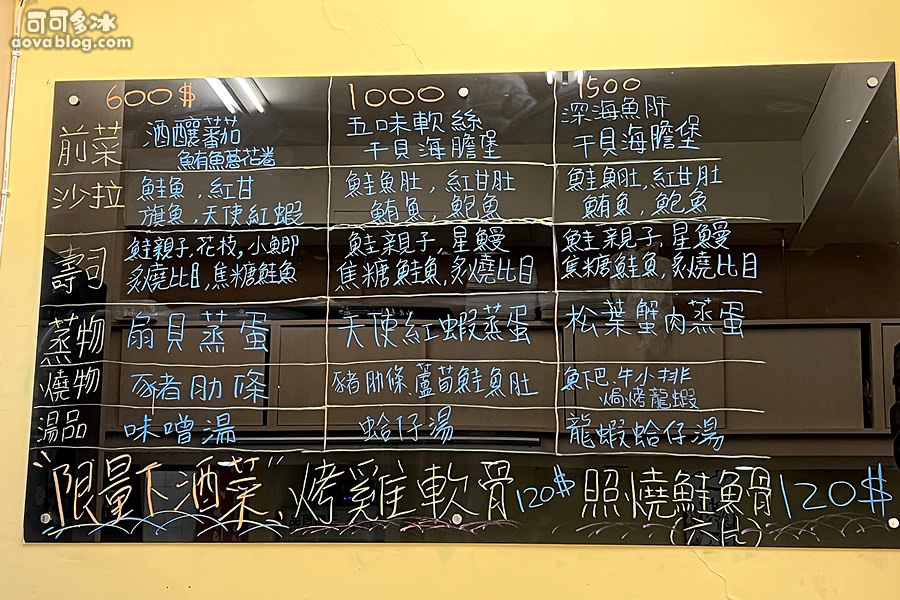 可可多冰
aovablog.com
600$ 1000 1500
前菜
酒釀蕃茄
鮪魚蔥花卷
五味軟絲
干貝海膽堡
深海魚肝
干貝海膽堡
沙拉
鮭魚,紅甘
旗魚,天使紅蝦
鮭魚肚,紅甘肚
鮪魚,鮑魚
鮭魚肚,紅甘肚
鮪魚,鮑魚
壽司
鮭親子,花枝,小鯽
炙燒比目,焦糖鮭魚
鮭親子,星鰻
焦糖鮭魚,炙燒比目
鮭親子,星鰻
焦糖鮭魚,炙燒比目
蒸物
扇貝蒸蛋
天使紅蝦蒸蛋
松葉蟹肉蒸蛋
燒物
豬肋條
豬肋條,蘆荀鮭魚肚
魚下巴、牛小排
焗烤龍蝦
湯品
味噌湯
蛤仔湯
龍蝦蛤仔湯
"限量下酒菜"、烤雞軟骨120$ 照燒鮭魚骨120$